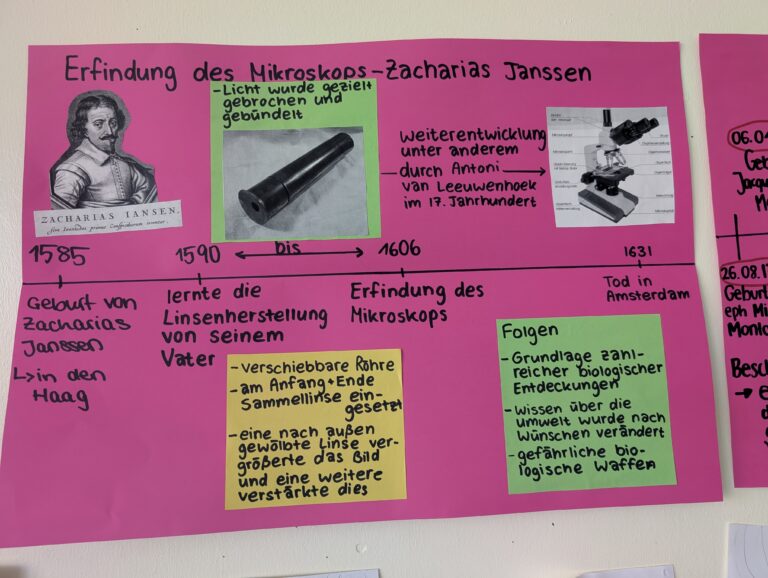 Erfindung des Mikroskops - Zacharias Janssen
- Licht wurde gezielt
gebrochen und
gebündelt
Weiterentwicklung
unter anderem
durch Antoni
van Leeuwenhoek
im 17. Jahrhundert
ZACHARIAS IANSEN,
1585
1590
bis
1606
1631
Geburt von
Zacharias
Janssen
↳ in den
Haag
lernte die
Linsenherstellung
von seinem
Vater
Erfindung des
Mikroskops
Tod in
Amsterdam
- verschiebbare Röhre
- am Anfang + Ende
Sammellinse ein-
gesetzt
- eine nach außen
gewölbte Linse ver-
größerte das Bild
und eine weitere
verstärkte dies
Folgen
- Grundlage zahl-
reicher biologischer
Entdeckungen
- wissen über die
umwelt wurde nach
wünschen verändert
- gefährliche bio-
logische Waffen
06.04
Geb
Jacqu
M
26.08.17
Geburt
eph Mi
Montg
Besch
→ e
d